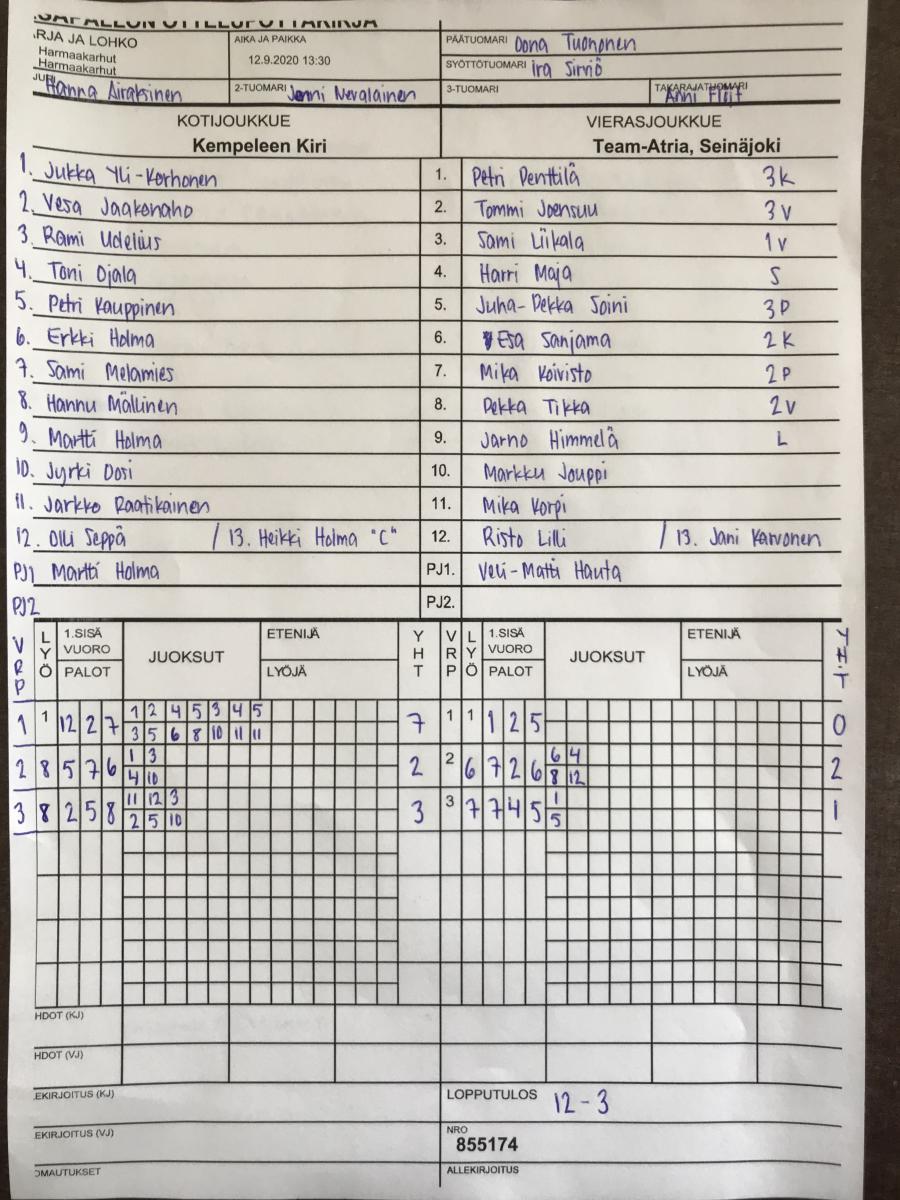 SAPALLON OTTELUPÖYTÄKIRJA
RJA JA LOHKO
Harmaakarhut
Harmaakarhut
AIKA JA PAIKKA
12.9.2020 13:30
PÄÄTUOMARI Oona Tuononen
SYÖTTÖTUOMARI Ira Sirviö
JURI Hanna Airaksinen 2-TUOMARI Jenni Nevalainen 3-TUOMARI TAKARAJATUOMARI Anni
KOTIJOUKKUE VIERASJOUKKUE
Kempeleen Kiri Team-Atria, Seinäjoki
1. Jukka Yli-Korhonen 1. Petri Penttilä 3K
2. Vesa Jaakonaho 2. Tommi Joensuu 3V
3. Rami Udelius 3. Sami Liikala 1V
4. Toni Ojala 4. Harri Maja S
5. Petri Kauppinen 5. Juha-Pekka Soini 3P
6. Erkki Holma 6. Esa Sanjama 2K
7. Sami Melamies 7. Mika Koivisto 2P
8. Hannu Mällinen 8. Pekka Tikka 2V
9. Martti Holma 9. Jarno Himmelä L
10. Jyrki Oosi 10. Markku Jouppi
11. Jarkko Raatikainen 11. Mika Korpi
12. Olli Seppä / 13. Heikki Holma "C" 12. Risto Lilli / 13. Jani Karvonen
PJ1 Martti Holma PJ1. Veli-Matti Hauta
PJ2 PJ2.
VRP LYÖ 1.SISÄ VUORO PALOT JUOKSUT ETENIJÄ LYÖJÄ YHT VRP LYÖ 1.SISÄ VUORO PALOT JUOKSUT ETENIJÄ LYÖJÄ YHT
1 1 12 2 7 1 2 4 5 3 4 5 7 1 1 1 2 5 0
3 5 6 8 10 11 11
2 8 5 7 6 1 3 2 2 6 7 2 6 6 4 2
4 10 8 12
3 8 2 5 8 11 12 3 3 3 7 7 4 5 1 1
2 5 10 5
HDOT (KJ)
HDOT (VJ)
EKIRJOITUS (KJ) LOPPUTULOS 12-3
EKIRJOITUS (VJ) NRO
855174
OMAUTUKSET ALLEKIRJOITUS